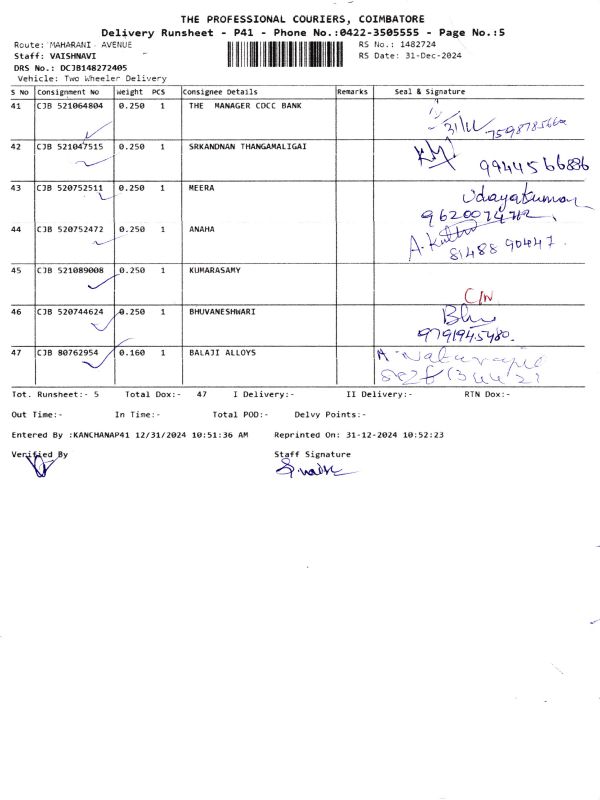 THE PROFESSIONAL COURIERS, COIMBATORE
Delivery Runsheet - P41 - Phone No.:0422-3505555 - Page No.:5
Route: MAHARANI AVENUE RS No.: 1482724
Staff: VAISHNAVI RS Date: 31-Dec-2024
DRS No.: DCJB148272405
Vehicle: Two Wheeler Delivery
S No Consignment No Weight PCS Consignee Details Remarks Seal & Signature
41 CJB 521064804 0.250 1 THE MANAGER CDCC BANK
42 CJB 521047515 0.250 1 SRKANDNAN THANGAMALIGAI
9944566836
43 CJB 520752511 0.250 1 MEERA Udayakumar
44 CJB 520752472 0.250 1 ANAHA
81488 90447.
45 CJB 521089008 0.250 1 KUMARASAMY
C/N
46 CJB 520744624 0.250 1 BHUVANESHWARI
9791945480.
47 CJB 80762954 0.160 1 BALAJI ALLOYS
Tot. Runsheet:- 5 Total Dox:- 47 I Delivery:- II Delivery:- RTN Dox:-
Out Time:- In Time:- Total POD:- Delvy Points:-
Entered By :KANCHANAP41 12/31/2024 10:51:36 AM Reprinted On: 31-12-2024 10:52:23
Verified By Staff Signature